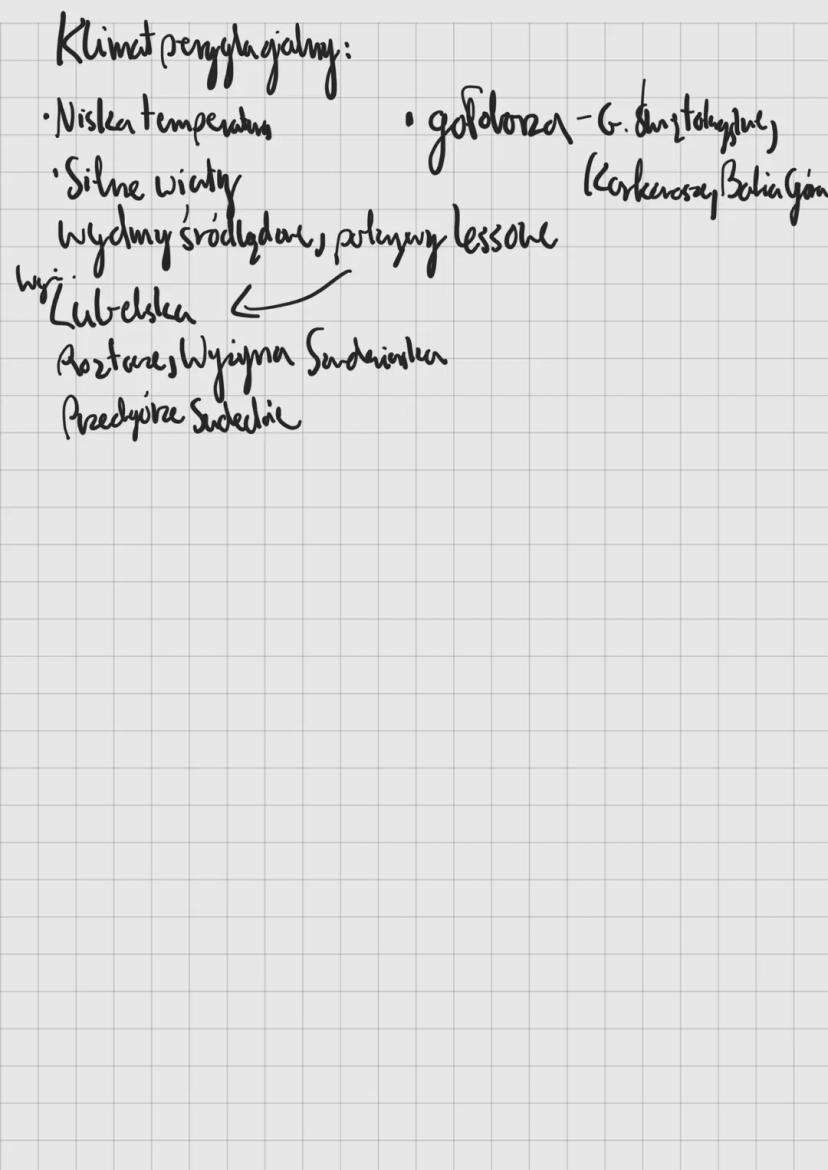 Klimat peryglacjalny:
• Niska temperatura
• Silne wiatry
wydmy śródlądowe, pokrywy lessowe
wyż.
Lubelska
Roztocze, Wyżyna Sandomierska
Przedgórze Sudeckie
• gołoborza - G. Świętokrzyskie,
(Karkonosze, Babia Góra